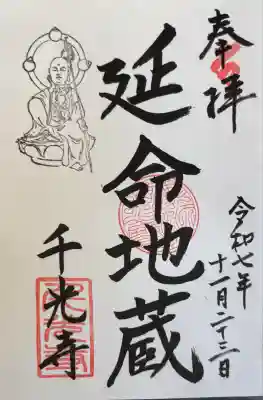 奉拝
令和七年
十一月二十三日
延命地蔵
千光寺